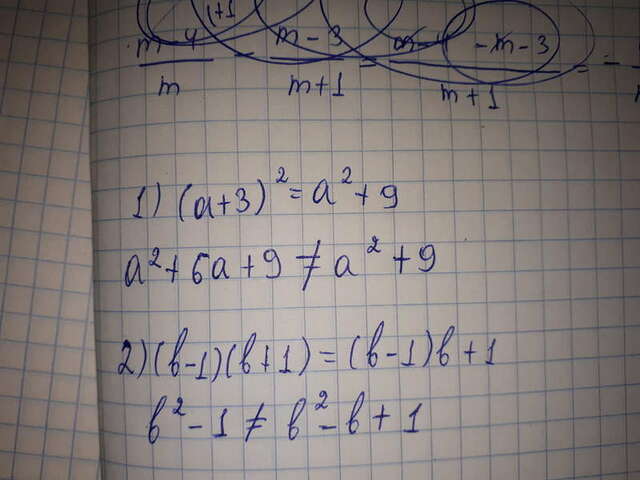 m-4/m - m-3/m+1 = m-4 -m-3/m+1 = -
1) (a+3)² = a² + 9
a² + 6a + 9 ≠ a² + 9
2) (b-1)(b+1) = (b-1)b+1
b² - 1 ≠ b² - b + 1